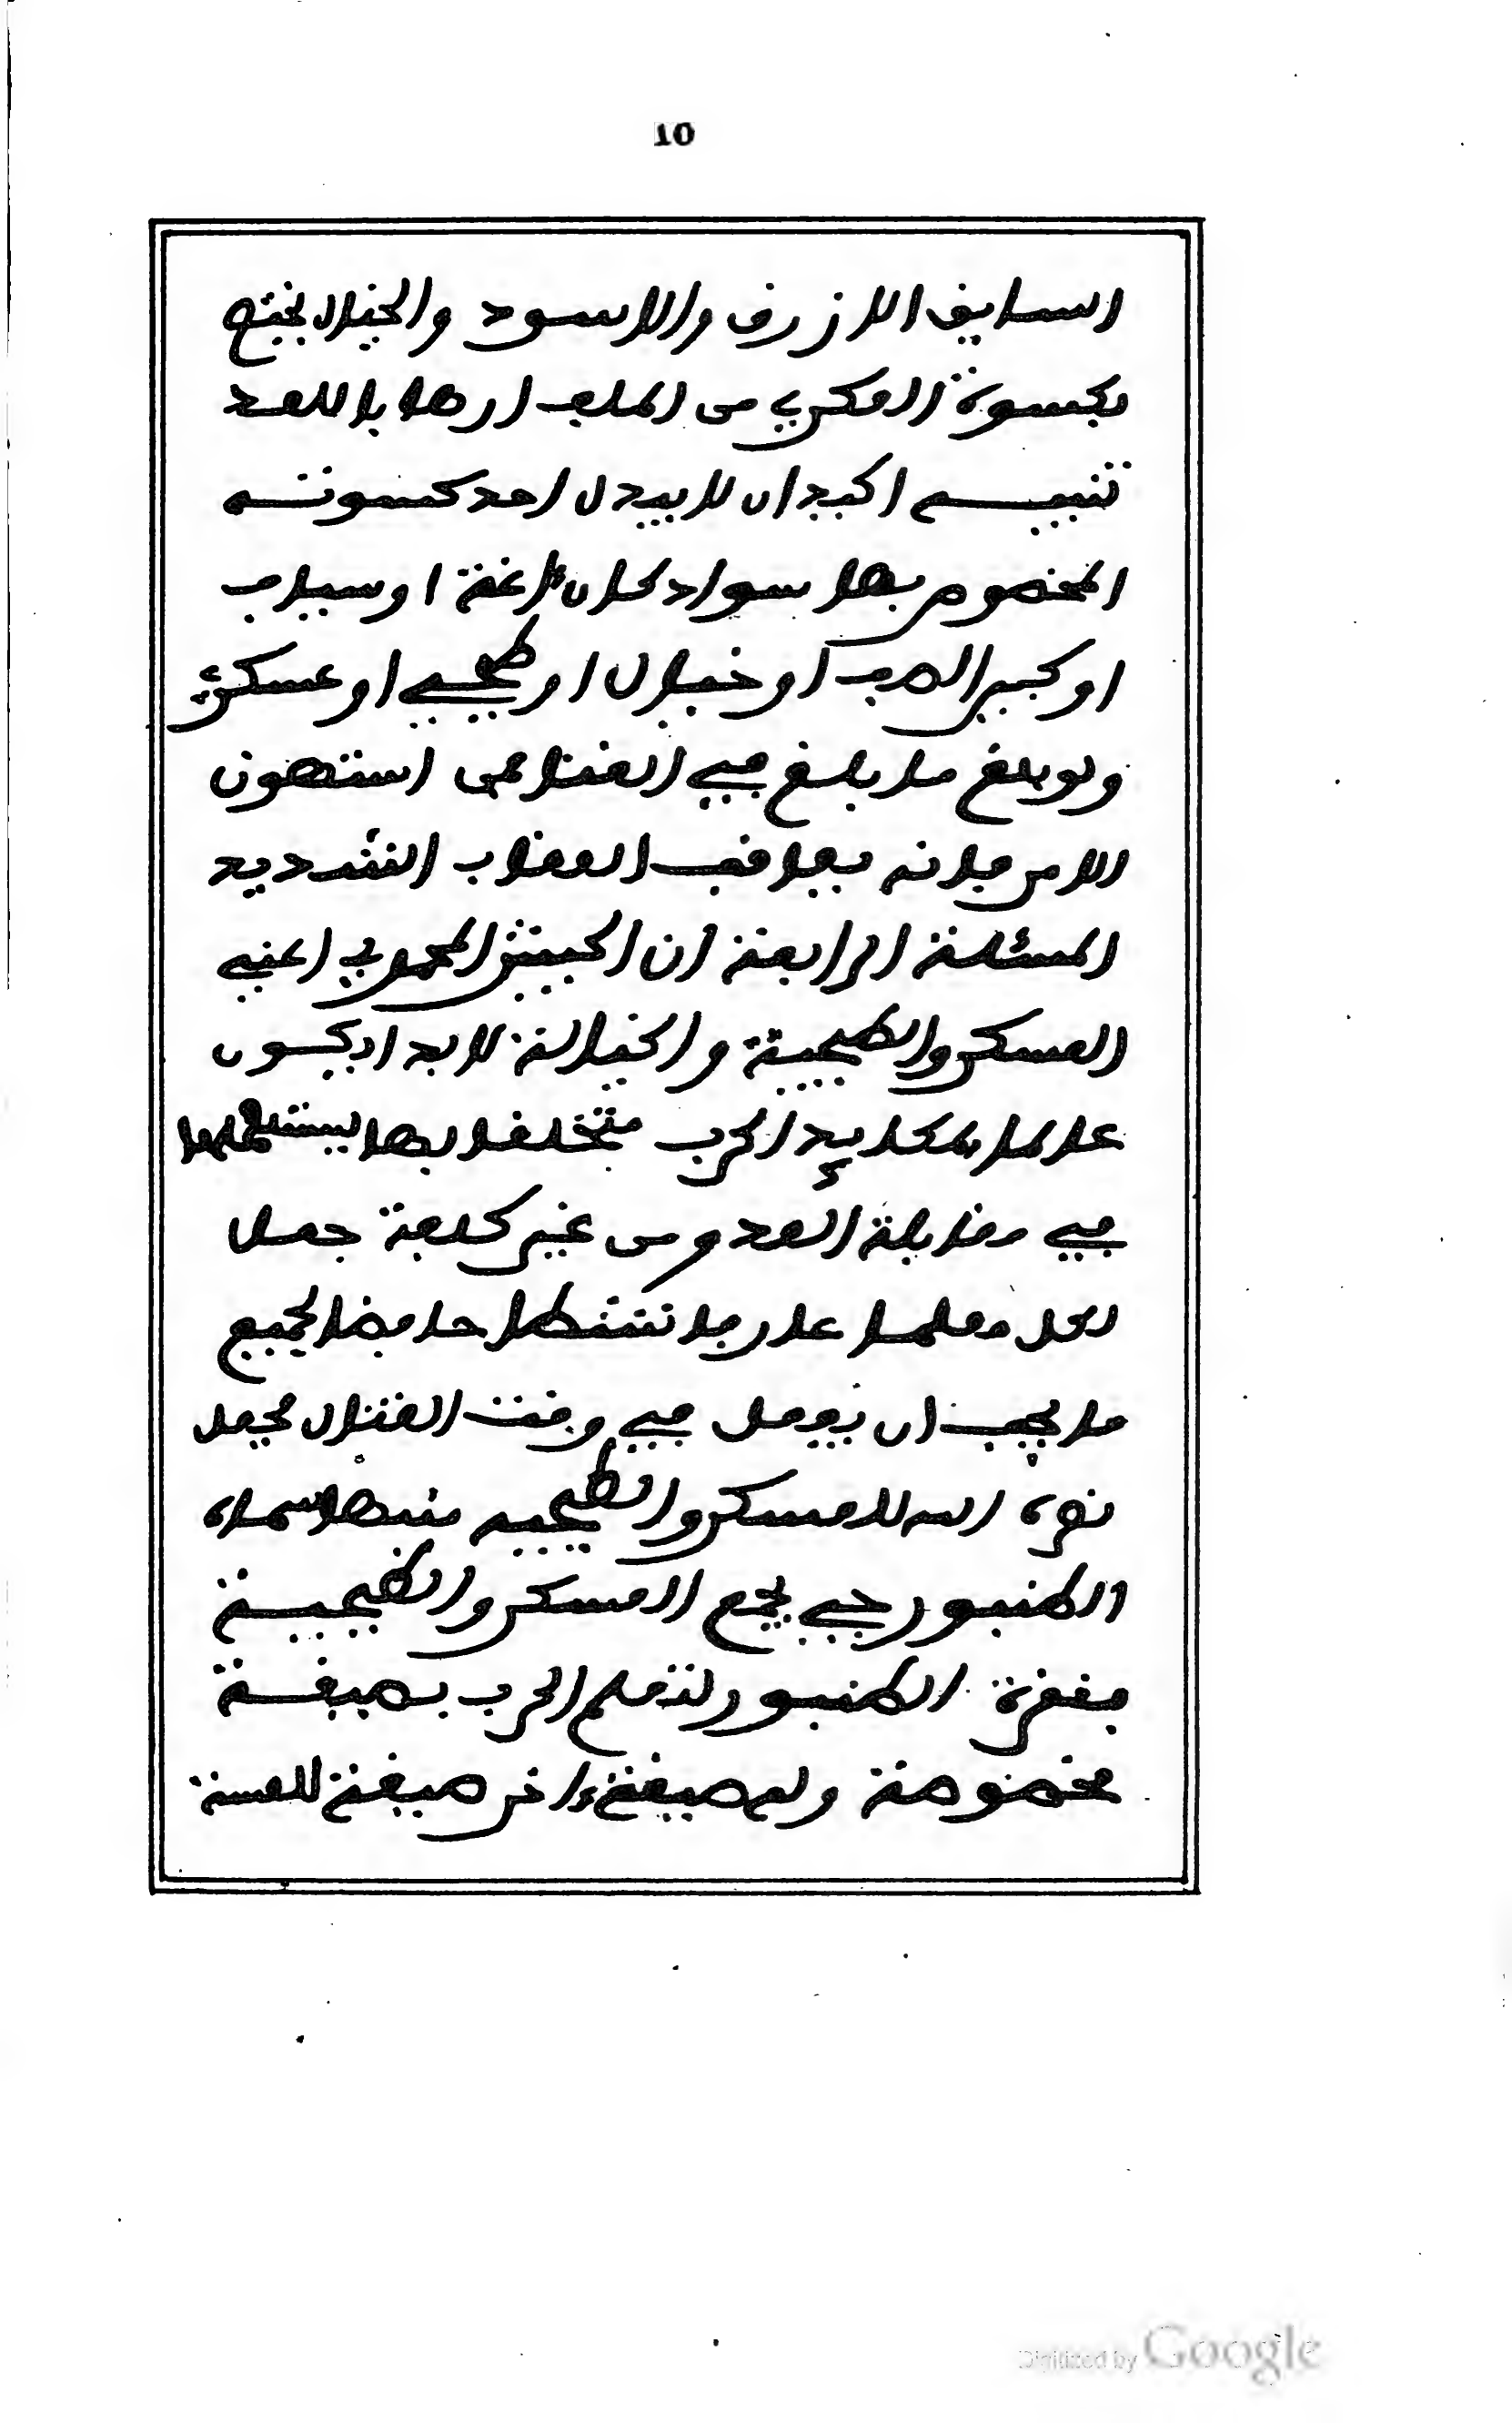 10
السايف الازرق والاسود والخيال يختم
بكسوة العكري من الملف ارهابا للعد
تنبيه اكيد ان لا يبدل احد كسوته
المخصوص بها سواء كان اغة او سياف
او كبير الصف او خيال او طبجي او عسكري
ولو بلغ ما بلغ في الغنا فمن استهون
الامر فانه يعاقب العقاب الشديد
المسئلة الرابعة ان الجيش المحمدي اعني
العسكر والطبجية والخيالة لابد ان يكون
عالما بمكايد الحرب متخلقا بها يستعملها
في مقابلة العدو من غير كلفة جعل
لكل معلما عارفا نشطا حافظا لجميع
ما يجب ان يعمل في وقت القتال فجعل
نصره الله للعسكر والطبجيه منبها سماه
الطنبورجي يجمع العسكر والطبجية
بنقرة الطنبور لتعلم الحرب بصيغة
مخصوصة وله صيغة اخر صيغة للعسة
Digitized by Google